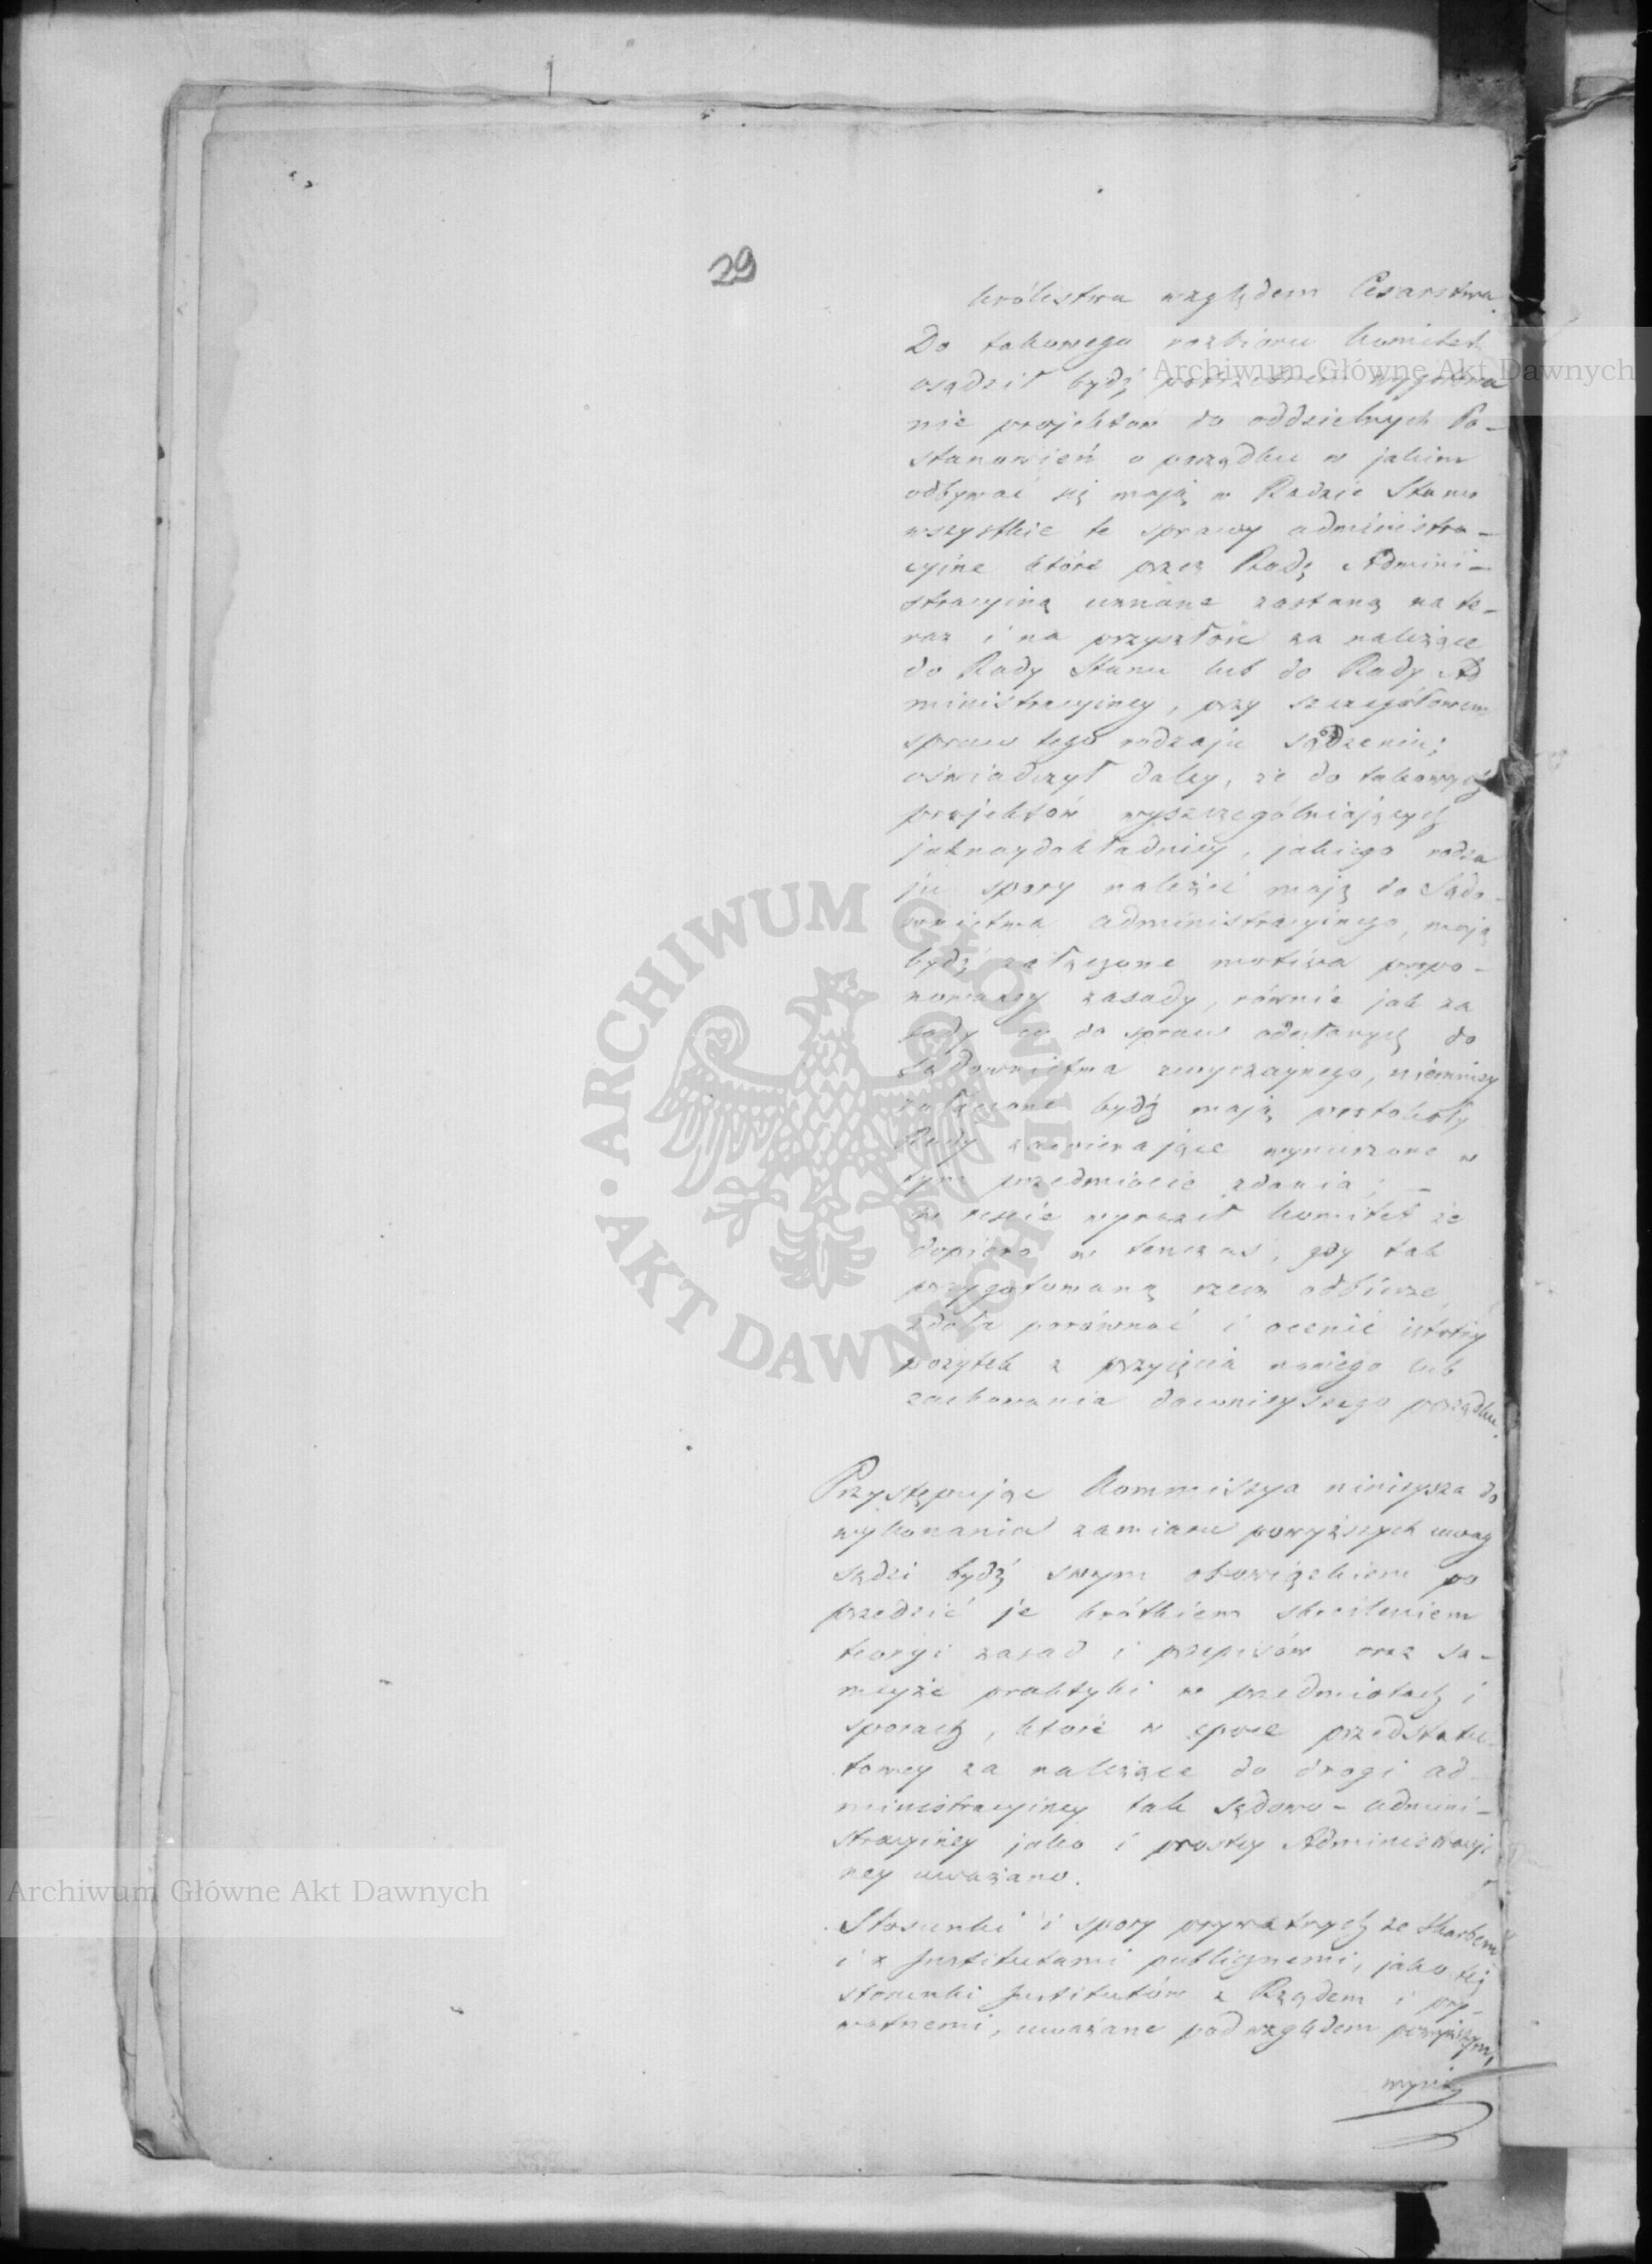 29
królestwa względem Cesarstwa.
Do takowego rozbioru komitet
osądził bydź potrzebnem wygotowa
nie projektów do oddzielnych Po-
stanowień o porządku w jakim
odbywać się mają w Radzie Stanu
wszystkie te sprawy administra-
cyjne które przez Radę Admini-
stracyiną uznane zostaną na te-
raz i na przyszłość za należące
do Rady Stanu lub do Rady Ad
ministracyiney, przy szczegółowem
spraw tego rodzaju sądzeniu;
oświadczył daley, że do takowych
projektów wyszczególniających
jaknaydokładniey, jakiego rodza
ju spory należeć mają do Sądo-
wnictwa administracyinego, mają
bydź załączone motiwa propo-
nowaney zasady, równie jak za
sady co do spraw odesłanych do
Sądownictwa zwyczaynego, niemniey
załączone bydź mają protokóły
Rady zawierające wynurzone w
tym przedmiocie zdania; —
w reście wyraził komitet że
dopiero w tenczas, gdy tak
przygotowaną rzecz odbierze,
zdoła porównać i ocenić istotny
pożytek z przyjęcia nowego lub
zachowania dawnieyszego porządku.
Przystępując Kommissya ninieysza do
wykonania zamiaru powyższych uwag
sądzi bydź swym obowiązkiem po
przedzić je krótkiem skreśleniem
teoryi zasad i przepisów oraz sa-
meyże praktyki w przedmiotach i
sporach, które w epoce przedstatu-
towey za należące do drogi ad-
ministracyiney tak sądowo-admini-
stracyiney jako i prostey Administracyi
ney uważano.
Stosunki i spory prywatnych ze Skarbem
i z Institutami publicznemi, jako też
stosunki Institutów z Rządem i pry-
watnemi, uważane pod względem powyższym,
Archiwum Główne Akt Dawnych
Archiwum Główne Akt Dawnych
• ARCHIWUM GŁÓWNE • AKT DAWNYCH